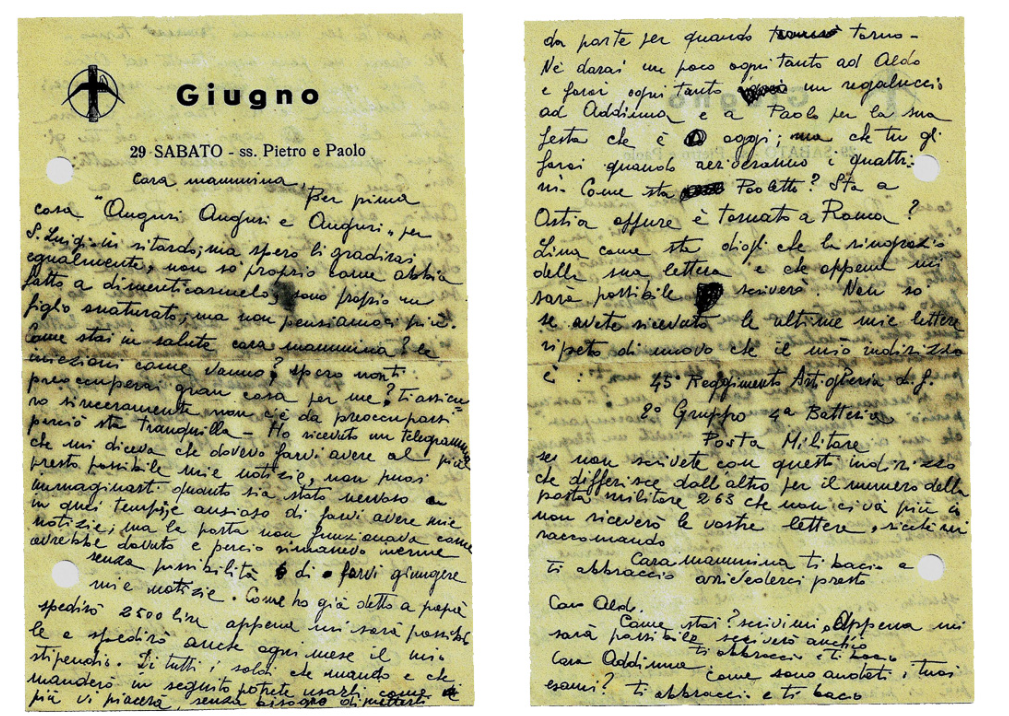 Giugno
29 SABATO - ss. Pietro e Paolo
Cara mammina,
Per prima
cosa "Auguri Auguri e Auguri" per
S. Luigi in ritardo; ma spero li gradirai
egualmente, non so proprio come abbia
fatto a dimenticarmelo; sono proprio un
figlio snaturato; ma non pensiamoci più.
Come stai in salute cara mammina? le
iniezioni come vanno? spero non ti
preoccuperai gran cosa per me? ti assicu-
ro sinceramente non c'è da preoccuparsi
perciò sta tranquilla - Ho ricevuto un telegramma
che mi diceva che dovevo farvi avere al più
presto possibile mie notizie, non puoi
immaginarti quanto sia stato nervoso
in quei tempi e ansioso di farvi avere mie
notizie; ma la posta non funzionava come
avrebbe dovuto e perciò rimanevo inerme
senza possibilità di farvi giungere
mie notizie. Come ho già detto a papà
spedirò 2500 lire appena mi sarà possibi-
le e spedirò anche ogni mese il mio
stipendio. Di tutti i soldi che mando e che
manderò in seguito potete usarli come
più vi piacerà, senza bisogno di metterli
da parte per quando torno -
Nè darai un poco ogni tanto ad Aldo
e farai ogni tanto un regaluccio
ad Addinna e a Paolo per la sua
festa che è oggi; ma che tu gli
farai quando arriveranno i quattri-
ni. Come sta Paoletto? Sta a
Ostia oppure è tornato a Roma?
Lina come sta digli che la ringrazio
della sua lettera e che appena mi
sarà possibile scriverò. Non so
se avete ricevuto le ultime mie lettere
ripeto di nuovo che il mio indirizzo
è: 45° Reggimento Artiglieria di f.
2° Gruppo 4a Batteria
Posta Militare
se non scrivete con questo indirizzo
che differisce dall'altro per il numero della
posta militare 263 che non ci va più io
non riceverò le vostre lettere,
raccomando
Cara mammina ti bacio e
ti abbraccio arrivederci presto
Caro Aldo.
Come stai? scrivimi. Appena mi
sarà possibile scriverò anch'io
ti abbraccio e ti bacio
Cara Addinna. Come sono andati i tuoi
esami? ti abbraccio e ti bacio